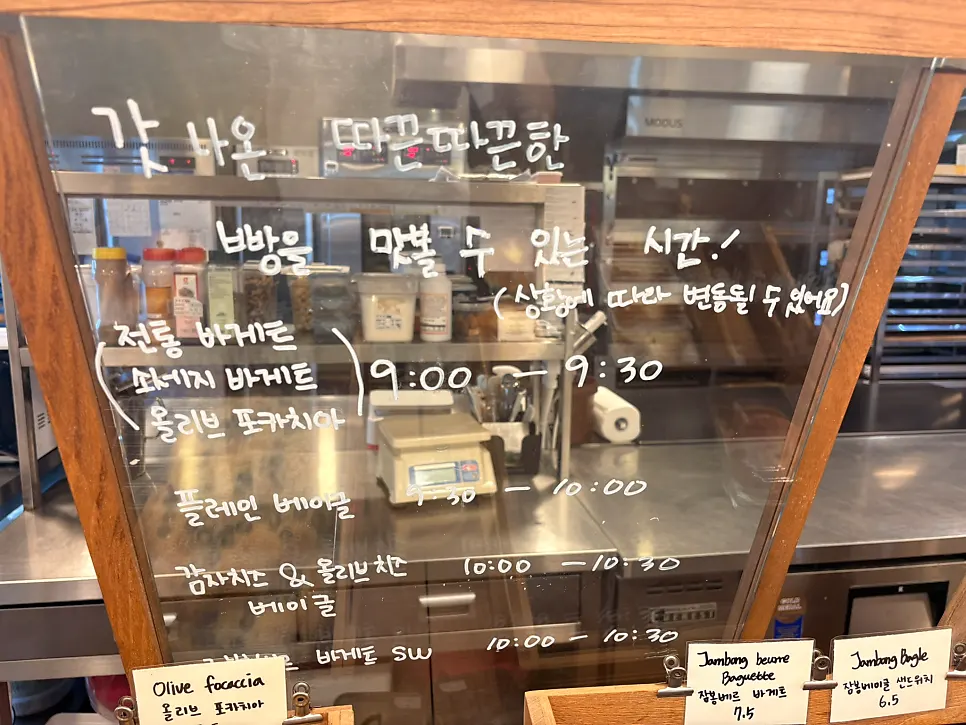 갓 나온 따끈따끈한
빵을 맛볼 수 있는 시간!
(상황에 따라 변동될 수 있어요)
전통 바게트
소세지 바게트
올리브 포카치아
9:00 — 9:30
플레인 베이글 9:30 — 10:00
감자치즈 & 올리브치즈 10:00 — 10:30
베이글
바게트 SW 10:00 — 10:30
MODUS
Olive focaccia
올리브 포카치아
Jambong beurre
Baguette
잠봉베르 바게트
7.5
Jambong Bagle
잠봉베이글 샌드위치
6.5